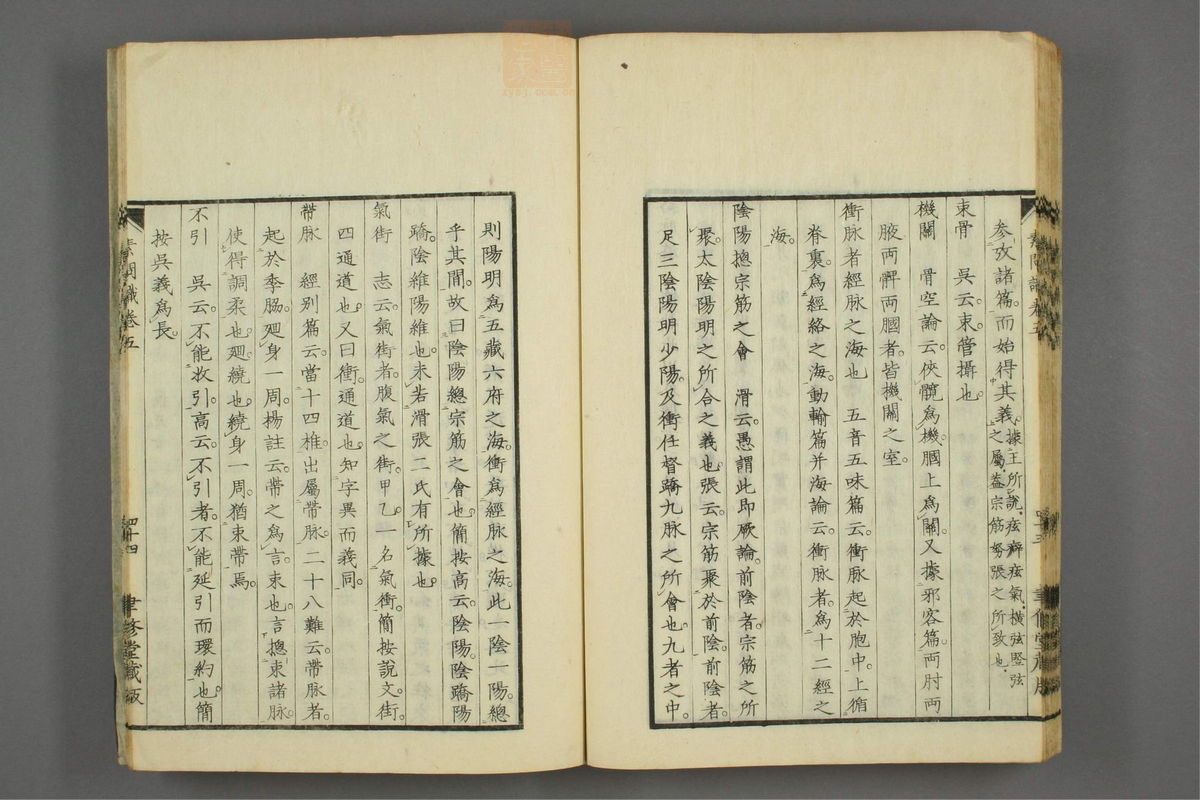 参攷諸篇。而始得其義。據王所說。痃癖痃氣。橫弦竪弦
之屬。蓋宗筋努張之所致也。
束骨 吳云。束。管攝也。
機關 骨空論云。俠髖爲機。膕上爲關。又據邪客篇。兩肘兩
腋兩髀兩膕者。皆機關之室。
衝脉者經脉之海也 五音五味篇云。衝脉起於胞中。上循
脊裏。爲經絡之海。動輸篇并海論云。衝脉者。爲十二經之
海。
陰陽摠宗筋之會 滑云。愚謂此即厥論。前陰者。宗筋之所
聚。太陰陽明之所合之義也。張云。宗筋聚於前陰。前陰者。
足三陰陽明少陽。及衝任督蹻九脉之所會也。九者之中。
則陽明爲五藏六府之海。衝爲經脉之海。此一陰一陽。總
乎其間。故曰陰陽總宗筋之會也。簡按高云。陰陽。陰蹻陽
蹻。陰維陽維也。未若滑張二氏有所據也。
氣街 志云。氣街者。腹氣之街。甲乙。一名氣衝。簡按說文。街。
四通道也。又曰衝。通道也。知字異而義同。
帶脉 經別篇云。當十四椎。出屬帶脉。二十八難云。帶脉者。
起於季脇。廻身一周。楊註云。帶之爲言。束也。言摠束諸脉。
使得調柔也。廻。繞也。繞身一周。猶束帶焉。
不引 吳云。不能收引。高云。不引者。不能延引而環約也。簡
按吳義爲長。
素問識卷五
四十四
聿修堂藏版
四十三
聿修堂藏版
zysj.com.cn